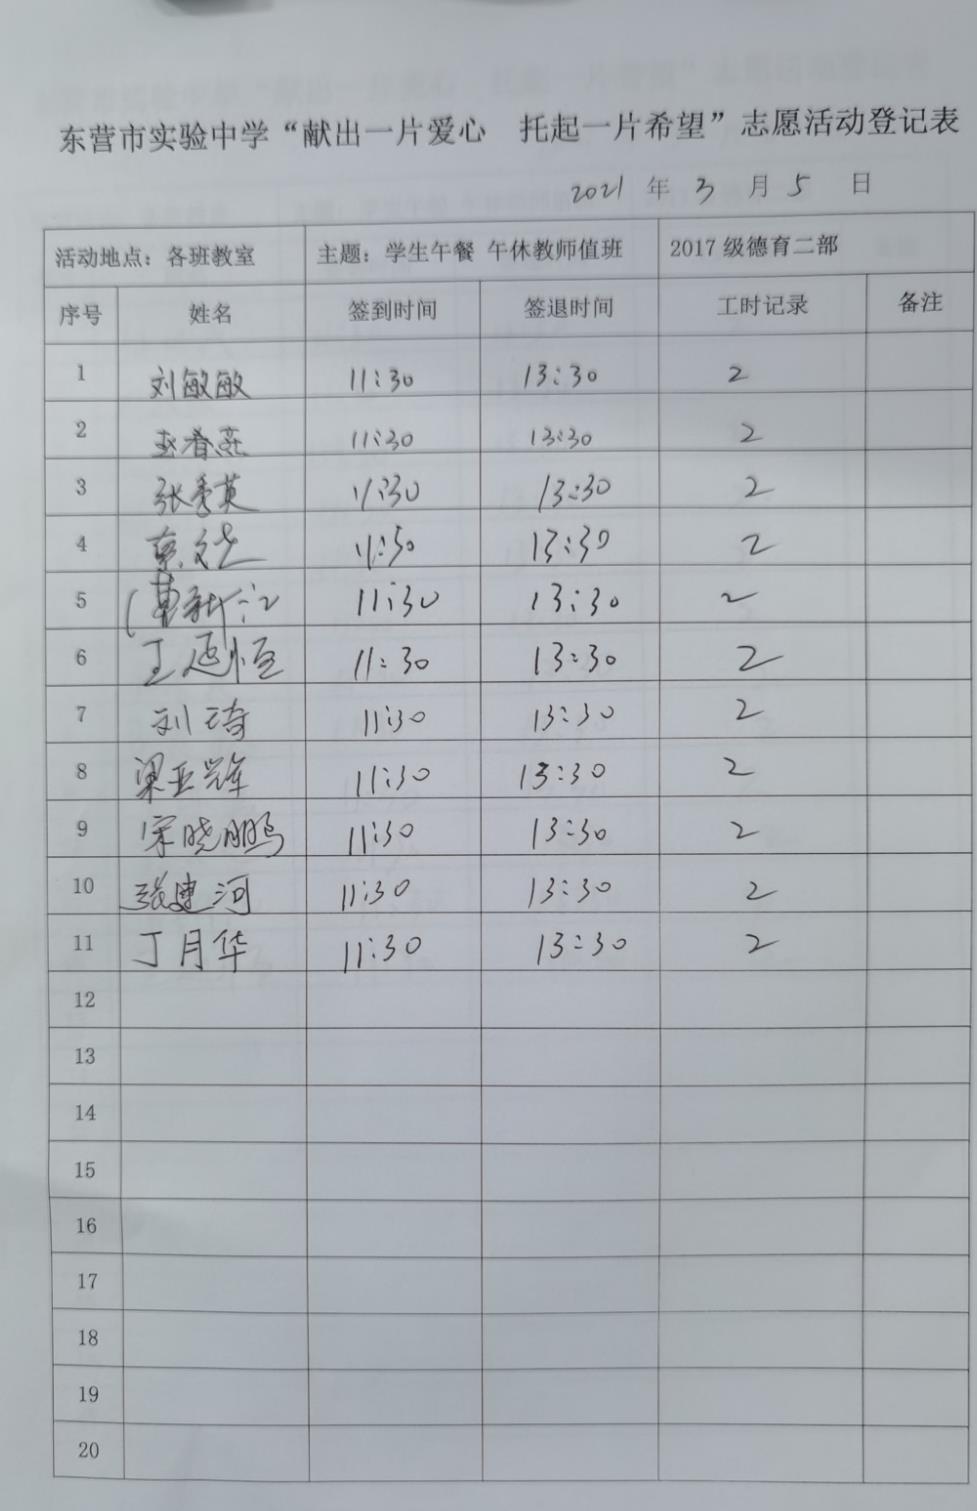 东营市实验中学“献出一片爱心 托起一片希望”志愿活动登记表
2021 年 3 月 5 日
活动地点：各班教室 主题：学生午餐 午休教师值班 2017 级德育二部
序号 姓名 签到时间 签退时间 工时记录 备注
1 刘敏敏 11:30 13:30 2
2 赵春燕 11:30 13:30 2
3 张秀英 11:30 13:30 2
4 11:30 13:30 2
5 11:30 13:30 2
6 王延恒 11:30 13:30 2
7 刘琦 11:30 13:30 2
8 梁亚辉 11:30 13:30 2
9 宋晓鹏 11:30 13:30 2
10 张建河 11:30 13:30 2
11 丁月华 11:30 13:30 2
12
13
14
15
16
17
18
19
20